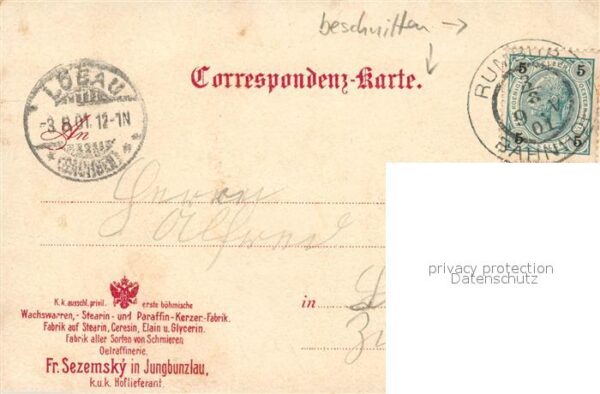 beschnitten →
Correspondenz-Karte.
LÖBAU
-3.8.01. 12-1N
* (SACHSEN) *
RUMBURG
BAHNHOF
5 5
5 5
An
Herrn
Alfred
in
privacy protection
Datenschutz
K. k. auschl. privil. erste böhmische
Wachswaren,- Stearin- und Paraffin-Kerzer-Fabrik.
Fabrik auf Stearin, Ceresin, Elain u. Glycerin.
Fabrik aller Sorten von Schmieren
Oelraffinerie.
Fr. Sezemský in Jungbunzlau,
k.u.k. Hoflieferant.